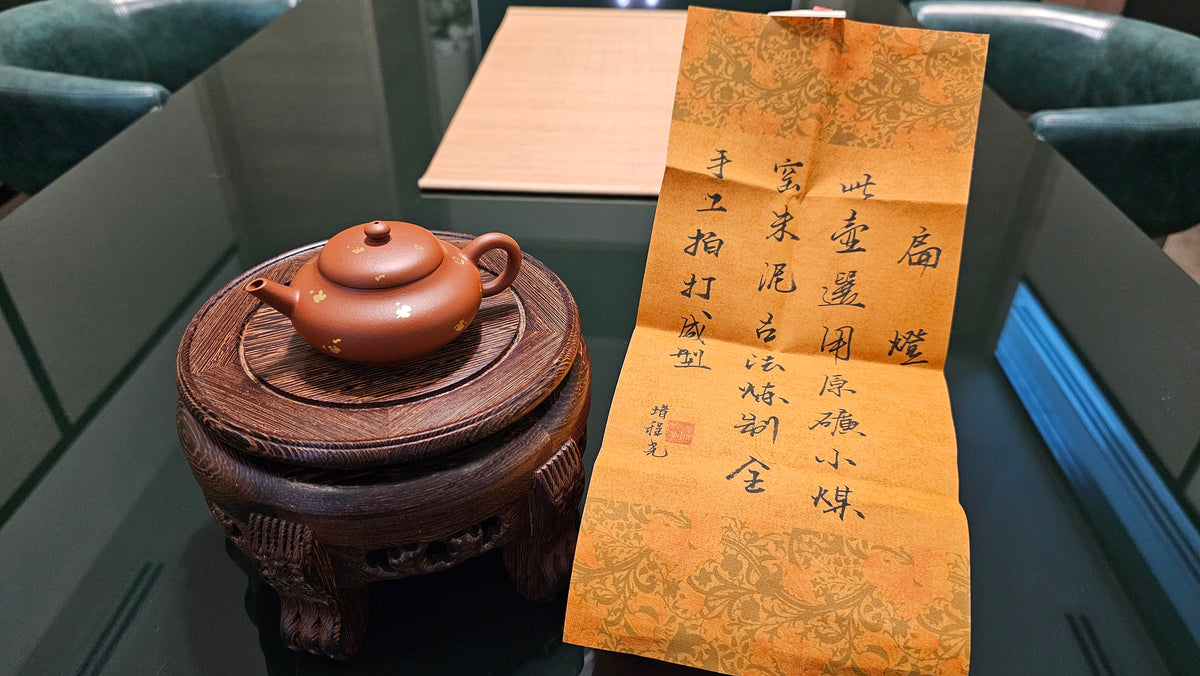 扁燈
此壺選用原礦小煤
窑朱泥古法炼制全
手工拍打成型
堵程尧